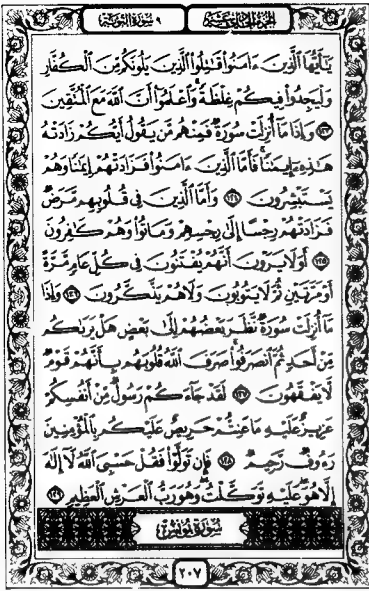 الجزء الحادي عشر ٩ سورة التوبة
يَٰٓأَيُّهَا ٱلَّذِينَ ءَامَنُوا۟ قَٰتِلُوا۟ ٱلَّذِينَ يَلُونَكُم مِّنَ ٱلْكُفَّارِ
وَلْيَجِدُوا۟ فِيكُمْ غِلْظَةً ۚ وَٱعْلَمُوٓا۟ أَنَّ ٱللَّهَ مَعَ ٱلْمُتَّقِينَ
﴿١٢٣﴾ وَإِذَا مَآ أُنزِلَتْ سُورَةٌ فَمِنْهُم مَّن يَقُولُ أَيُّكُمْ زَادَتْهُ
هَٰذِهِۦٓ إِيمَٰنًا ۚ فَأَمَّا ٱلَّذِينَ ءَامَنُوا۟ فَزَادَتْهُمْ إِيمَٰنًا وَهُمْ
يَسْتَبْشِرُونَ ﴿١٢٤﴾ وَأَمَّا ٱلَّذِينَ فِى قُلُوبِهِم مَّرَضٌ
فَزَادَتْهُمْ رِجْسًا إِلَىٰ رِجْسِهِمْ وَمَاتُوا۟ وَهُمْ كَٰفِرُونَ
﴿١٢٥﴾ أَوَلَا يَرَوْنَ أَنَّهُمْ يُفْتَنُونَ فِى كُلِّ عَامٍ مَّرَّةً
أَوْ مَرَّتَيْنِ ثُمَّ لَا يَتُوبُونَ وَلَا هُمْ يَذَّكَّرُونَ ﴿١٢٦﴾ وَإِذَا
مَآ أُنزِلَتْ سُورَةٌ نَّظَرَ بَعْضُهُمْ إِلَىٰ بَعْضٍ هَلْ يَرَىٰكُم
مِّنْ أَحَدٍ ثُمَّ ٱنصَرَفُوا۟ ۚ صَرَفَ ٱللَّهُ قُلُوبَهُم بِأَنَّهُمْ قَوْمٌ
لَّا يَفْقَهُونَ ﴿١٢٧﴾ لَقَدْ جَآءَكُمْ رَسُولٌ مِّنْ أَنفُسِكُمْ
عَزِيزٌ عَلَيْهِ مَا عَنِتُّمْ حَرِيصٌ عَلَيْكُم بِٱلْمُؤْمِنِينَ
رَءُوفٌ رَّحِيمٌ ﴿١٢٨﴾ فَإِن تَوَلَّوْا۟ فَقُلْ حَسْبِىَ ٱللَّهُ لَآ إِلَٰهَ
إِلَّا هُوَ ۖ عَلَيْهِ تَوَكَّلْتُ ۖ وَهُوَ رَبُّ ٱلْعَرْشِ ٱلْعَظِيمِ ﴿١٢٩﴾
سورة يونس
٢٠٧